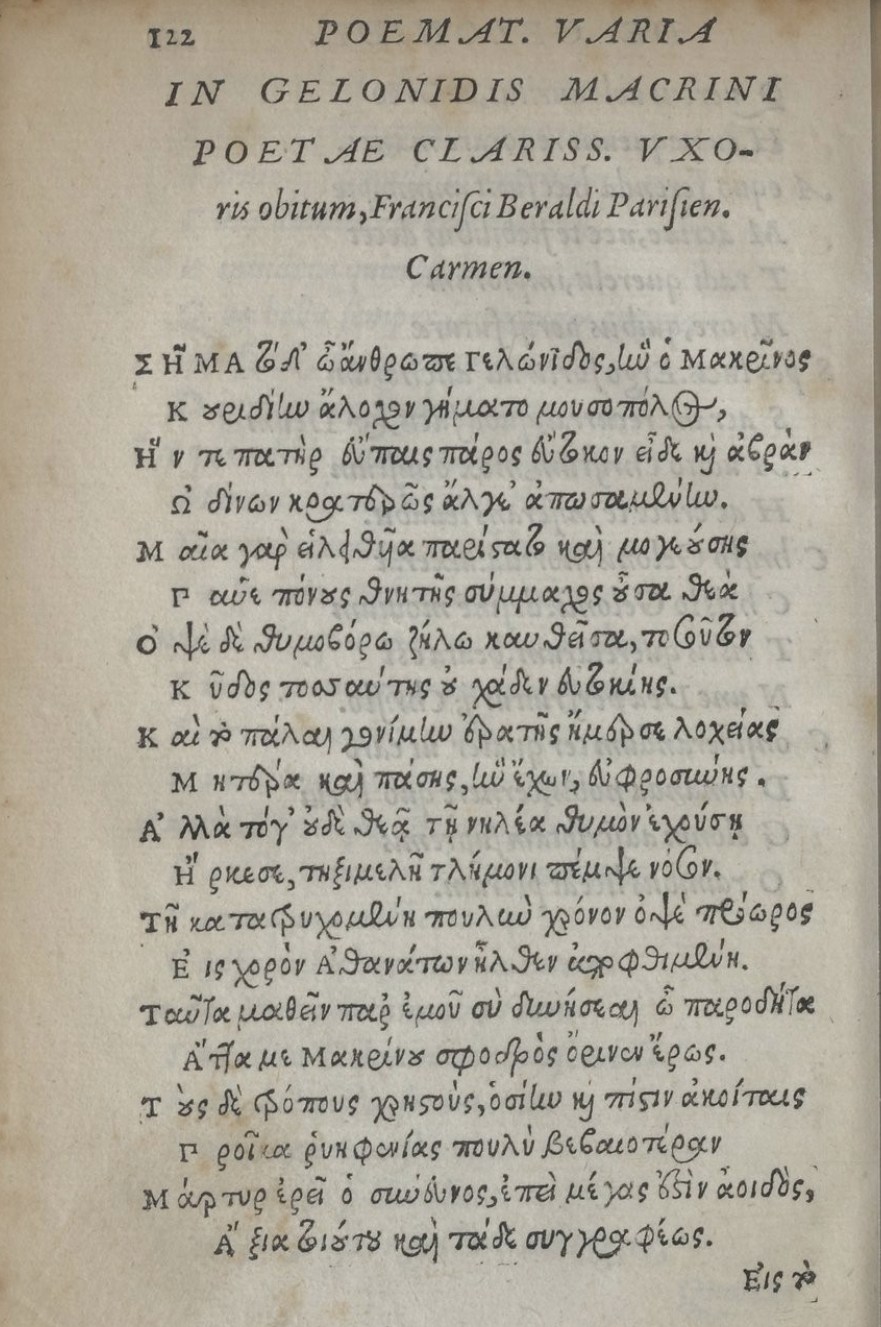 122 POEMAT. VARIA
IN GELONIDIS MACRINI
POETAE CLARISS. VXO-
ris obitum, Francisci Beraldi Parisien.
Carmen.
ΣΗ͂ΜΑ τόδ' ὦ ἄνθρωπε Γελώνιδος, ἣν ὁ Μακρῖνος
Κουριδίην ἄλοχον γήματο μουσοπόλος,
Ἥν τε πατὴρ εὔπαις πάρος εὔτοκον εἶδε καὶ ἁβρὰν
Ὠδίνων κρατερῶς ἄλγε' ἀπωσαμένην.
Μαῖα γὰρ εἰλείθυια παρίστατο καὶ μογεούσης
Παῦε πόνους θνητῆς σύμμαχος οὖσα θεὰ
Ὀψὲ δὲ θυμοβόρῳ ζήλῳ καυθεῖσα, τοσοῦτον
Κῦδος τοσαύτης οὐ χάδεν εὐτοκίης.
Καὶ τὴν πάλαι γονίμην ἐρατῆς ἤμερσε λοχείας
Μητέρα καὶ πάσης, ἣν ἔχον, εὐφροσύνης.
Ἀλλὰ τόγ' οὐδὲ θεᾷ τῇ νηλέα θυμὸν ἐχούσῃ
Ἤρκεσε, τηξιμελῆ τλήμονι πέμψε νόσον.
Τῇ κατατρυχομένη πουλὺν χρόνον ὀψὲ πρόωρος
Εἰς χορὸν Ἀθανάτων ἦλθεν ἀποφθιμένη.
Ταῦτα μαθεῖν παρ' ἐμοῦ σὺ δυνήσεαι ὦ παροδῖτα
Ἅττα με Μακρίνου σφοδρὸς ὄρινεν ἔρως.
Τοὺς δὲ τρόπους χρηστοὺς, ὁσίην καὶ πίστιν ἀκοίταις
Προῖκα ῥυηφενίας πουλὺ βεβαιοτέραν
Μάρτυρ ἐρεῖ ὁ σύνευνος, ἐπεὶ μέγας ἐστὶν ἀοιδὸς,
Ἄξια τοιούτου καὶ τάδε συγγραφέως.
Εἰς τὴν